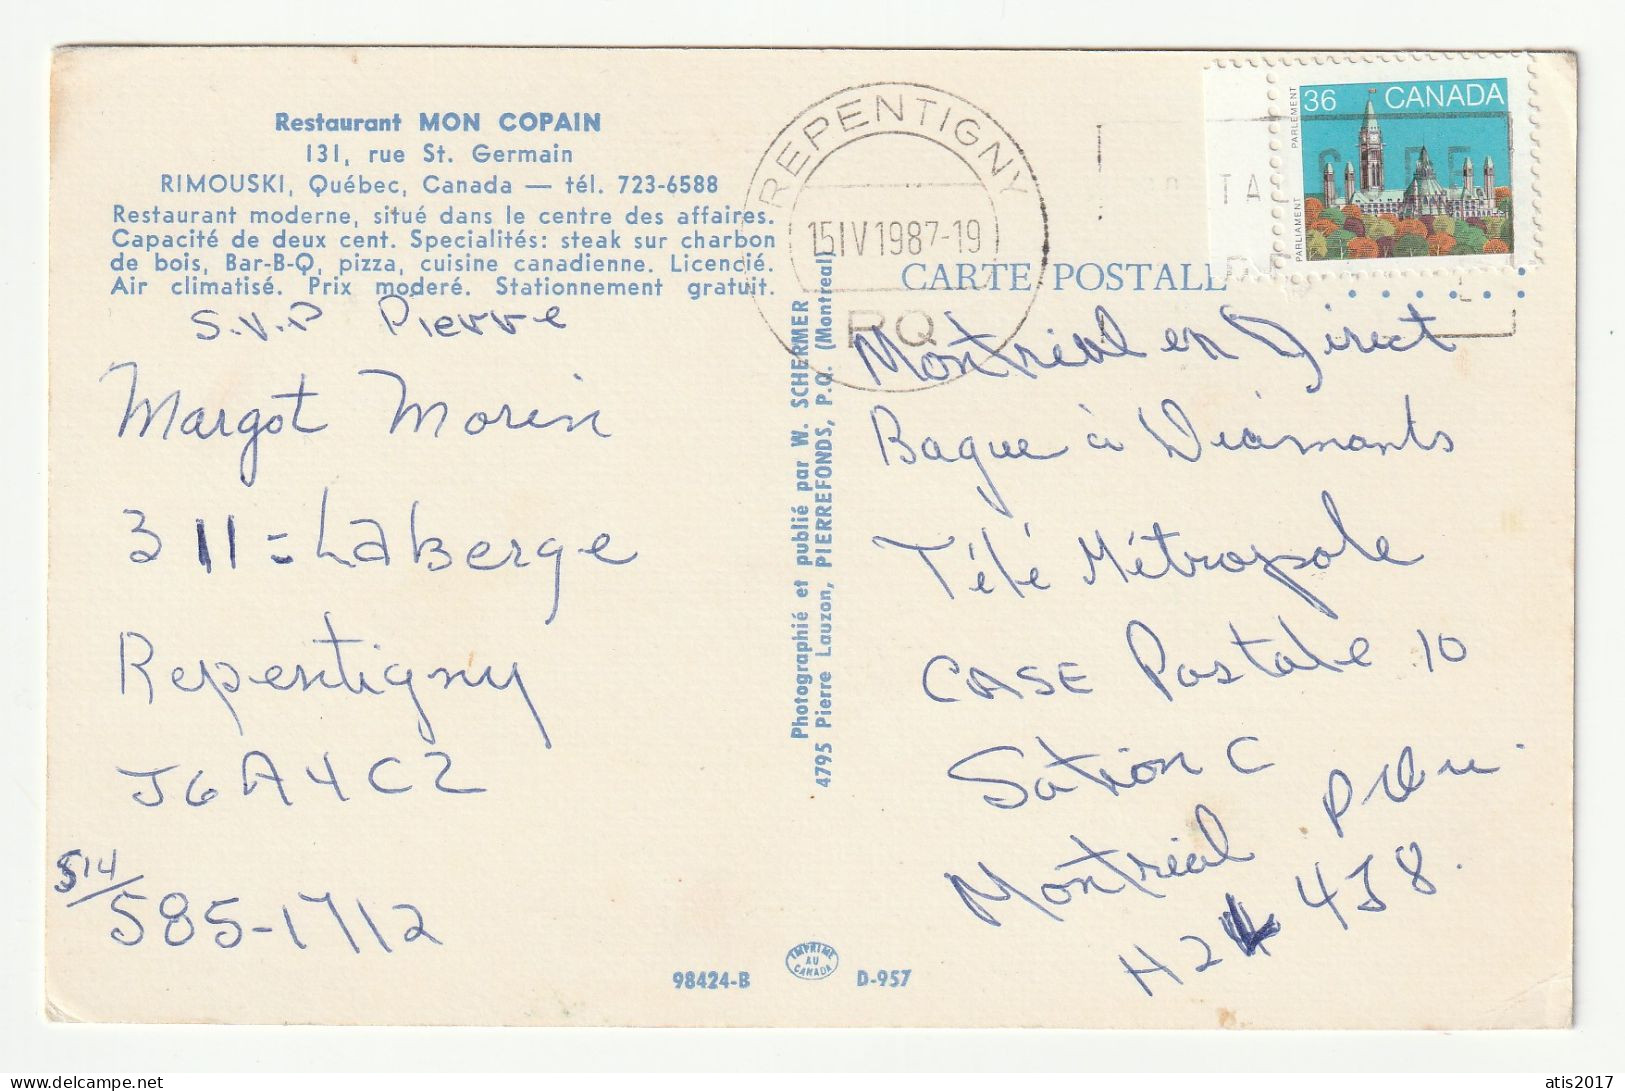 Restaurant MON COPAIN
131, rue St. Germain
RIMOUSKI, Québec, Canada — tél. 723-6588
Restaurant moderne, situé dans le centre des affaires.
Capacité de deux cent. Specialités: steak sur charbon
de bois, Bar-B-Q, pizza, cuisine canadienne. Licencié.
Air climatisé. Prix moderé. Stationnement gratuit.
S.V.P Pierre
Margot Morin
311=LaBerge
Repentigny
J6A4C2
514/
585-1712
Photographié et publié par W. SCHERMER
4795 Pierre Lauzon, PIERREFONDS, P.Q. (Montreal)
98424-B
IMPRIMÉ
AU
CANADA
D-957
REPENTIGNY
15 IV 1987-19
PQ
36 CANADA
PARLIAMENT PARLEMENT
CARTE POSTALE
Montréal en Direct
Bague à Diamants
Télé Métropole
CASE Postale 10
Sation C
Montréal
H2 4J8.
atis2017